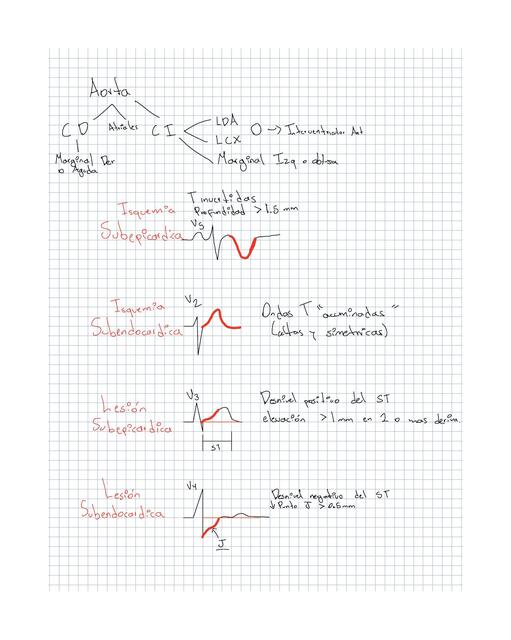 Aorta
CD Atriales CI LDA O → Interventricular Ant.
LCX
Marginal Der Marginal Izq o obtusa
o Aguda
Isquemia
Subepicardica
T invertidas
Profundidad > 1.5 mm
V5
Isquemia
Subendocardica
V2
Ondas T "acuminadas"
(altas y simetricas)
Lesión
Subepicardica
V3
ST
Desnivel positivo del ST
elevación > 1 mm en 2 o mas deriva
Lesión
Subendocardica
V4
J
Desnivel negativo del ST
↓ Punto J > 0.5mm